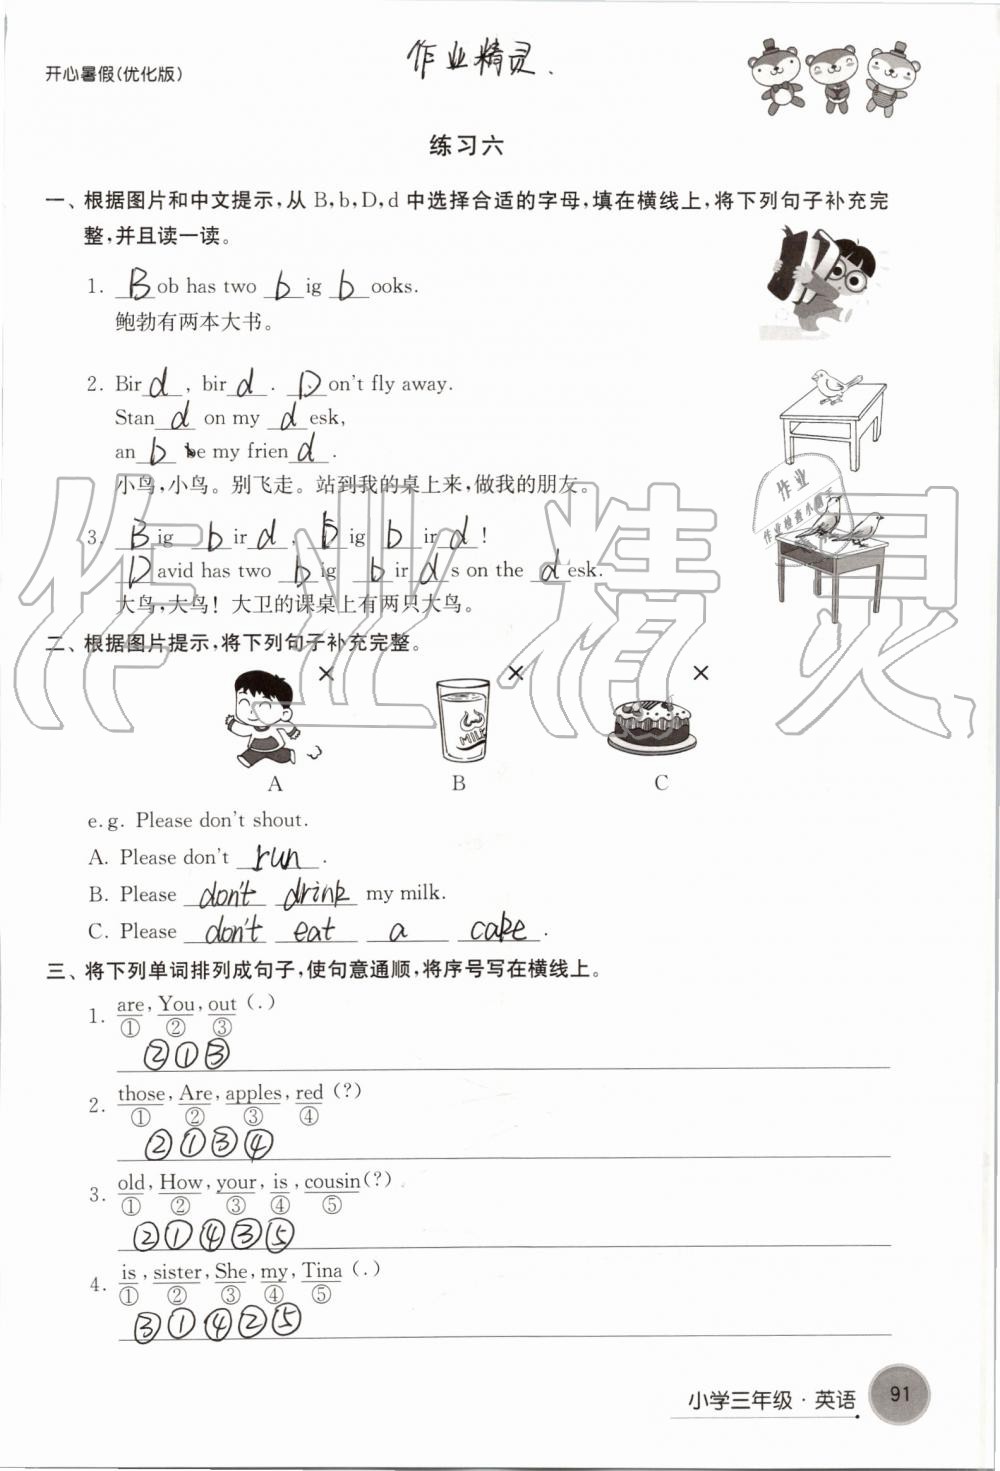 开心暑假(优化版)
作业精灵.
练习六
一、根据图片和中文提示,从 B,b,D,d 中选择合适的字母,填在横线上,将下列句子补充完
整,并且读一读。
1. Bob has two big books.
鲍勃有两本大书。
2. Bird, bird. Don't fly away.
Stand on my desk,
anb be my friend.
小鸟,小鸟。别飞走。站到我的桌上来,做我的朋友。
3. Big bird, Big bird!
David has two big birds on the desk.
大鸟,大鸟!大卫的课桌上有两只大鸟。
作业
作业检查小
作业精灵
二、根据图片提示,将下列句子补充完整。
× × ×
MILK
A B C
e.g. Please don't shout.
A. Please don't run.
B. Please don't drink my milk.
C. Please don't eat a cake.
三、将下列单词排列成句子,使句意通顺,将序号写在横线上。
1. are, You, out (.)
① ② ③
②①③
2. those, Are, apples, red (?)
① ② ③ ④
②①③④
3. old, How, your, is, cousin(?)
① ② ③ ④ ⑤
②①④③⑤
4. is, sister, She, my, Tina (.)
① ② ③ ④ ⑤
③①④②⑤
小学三年级·英语 91